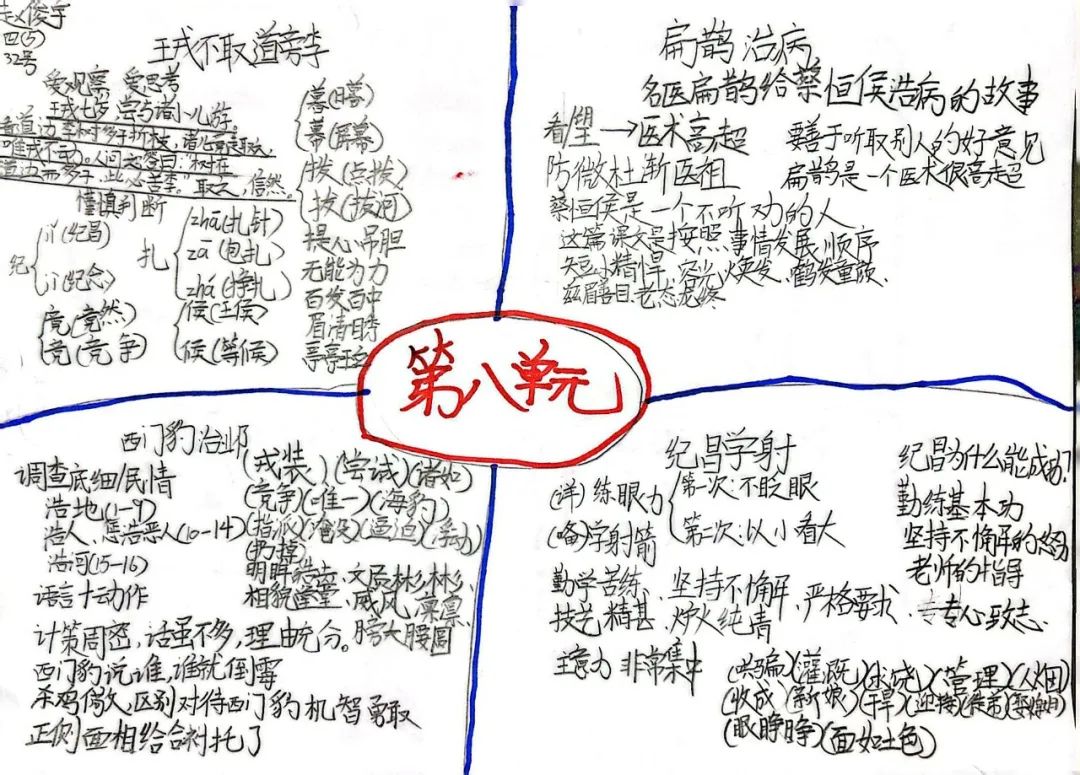 赵俊宇
四(5)
32号
王戎不取道旁李
爱观察 爱思考
王戎七岁,尝与诸小儿游。
看道边李树多子折枝,诸儿竞走取之,
唯戎不动。人问之,答曰:“树在
道边而多子,此必苦李。”取之,信然。
慎填判断
纪 jǐ(纪昌)
jì(纪念)
竟(竟然)
竞(竞争)
扎 zhā(扎针)
zā(包扎)
zhá(挣扎)
侯(王侯)
候(等候)
暮
幕(屏幕)
拨(点拨)
拔(拔河)
提心吊胆
无能为力
百发百中
眉清目秀
亭亭玉立
扁鹊治病
名医扁鹊给蔡恒侯治病的故事
看/望→医术高超 要善于听取别人的好意见
防微杜渐医祖 扁鹊是一个医术很高超
蔡恒侯是一个不听劝的人
这篇课文是按照事情发展顺序
短小精悍、容光焕发、鹤发童颜、
慈眉善目、老态龙钟
第八单元
西门豹治邺
调查底细/民情
浩地(1-9)
浩人、惩浩恶人(10-14)
浩河(15-16)
语言十动作
(戎装)(尝试)(诸如)
(竞争)(唯一)(海豹)
(指派)(淹没)(逼迫)(浮动)
(扔掉)
明眸皓齿、文质彬彬、
相貌堂堂、威风凛凛、
计策周密,话虽不多,理由充分。膀大腰圆
西门豹说谁,谁就倒霉
杀鸡儆猴,区别对待西门豹机智勇敢
正侧面相给合衬托了
纪昌学射
(详)练眼力 第一次:不眨眼
第二次:以小看大
(略)学射箭
勤学苦练、坚持不懈、严格要求、专心致志
技艺精甚、炉火纯青
注意力 非常集中
纪昌为什么能成功?
勤练基本功
坚持不懈的努力
老师的指导
(哄骗)(灌溉)(求饶)(管理)(从田)
(收成)(新娘)(干旱)(迎接)(徒弟)
(眼睁睁)(面如土色)